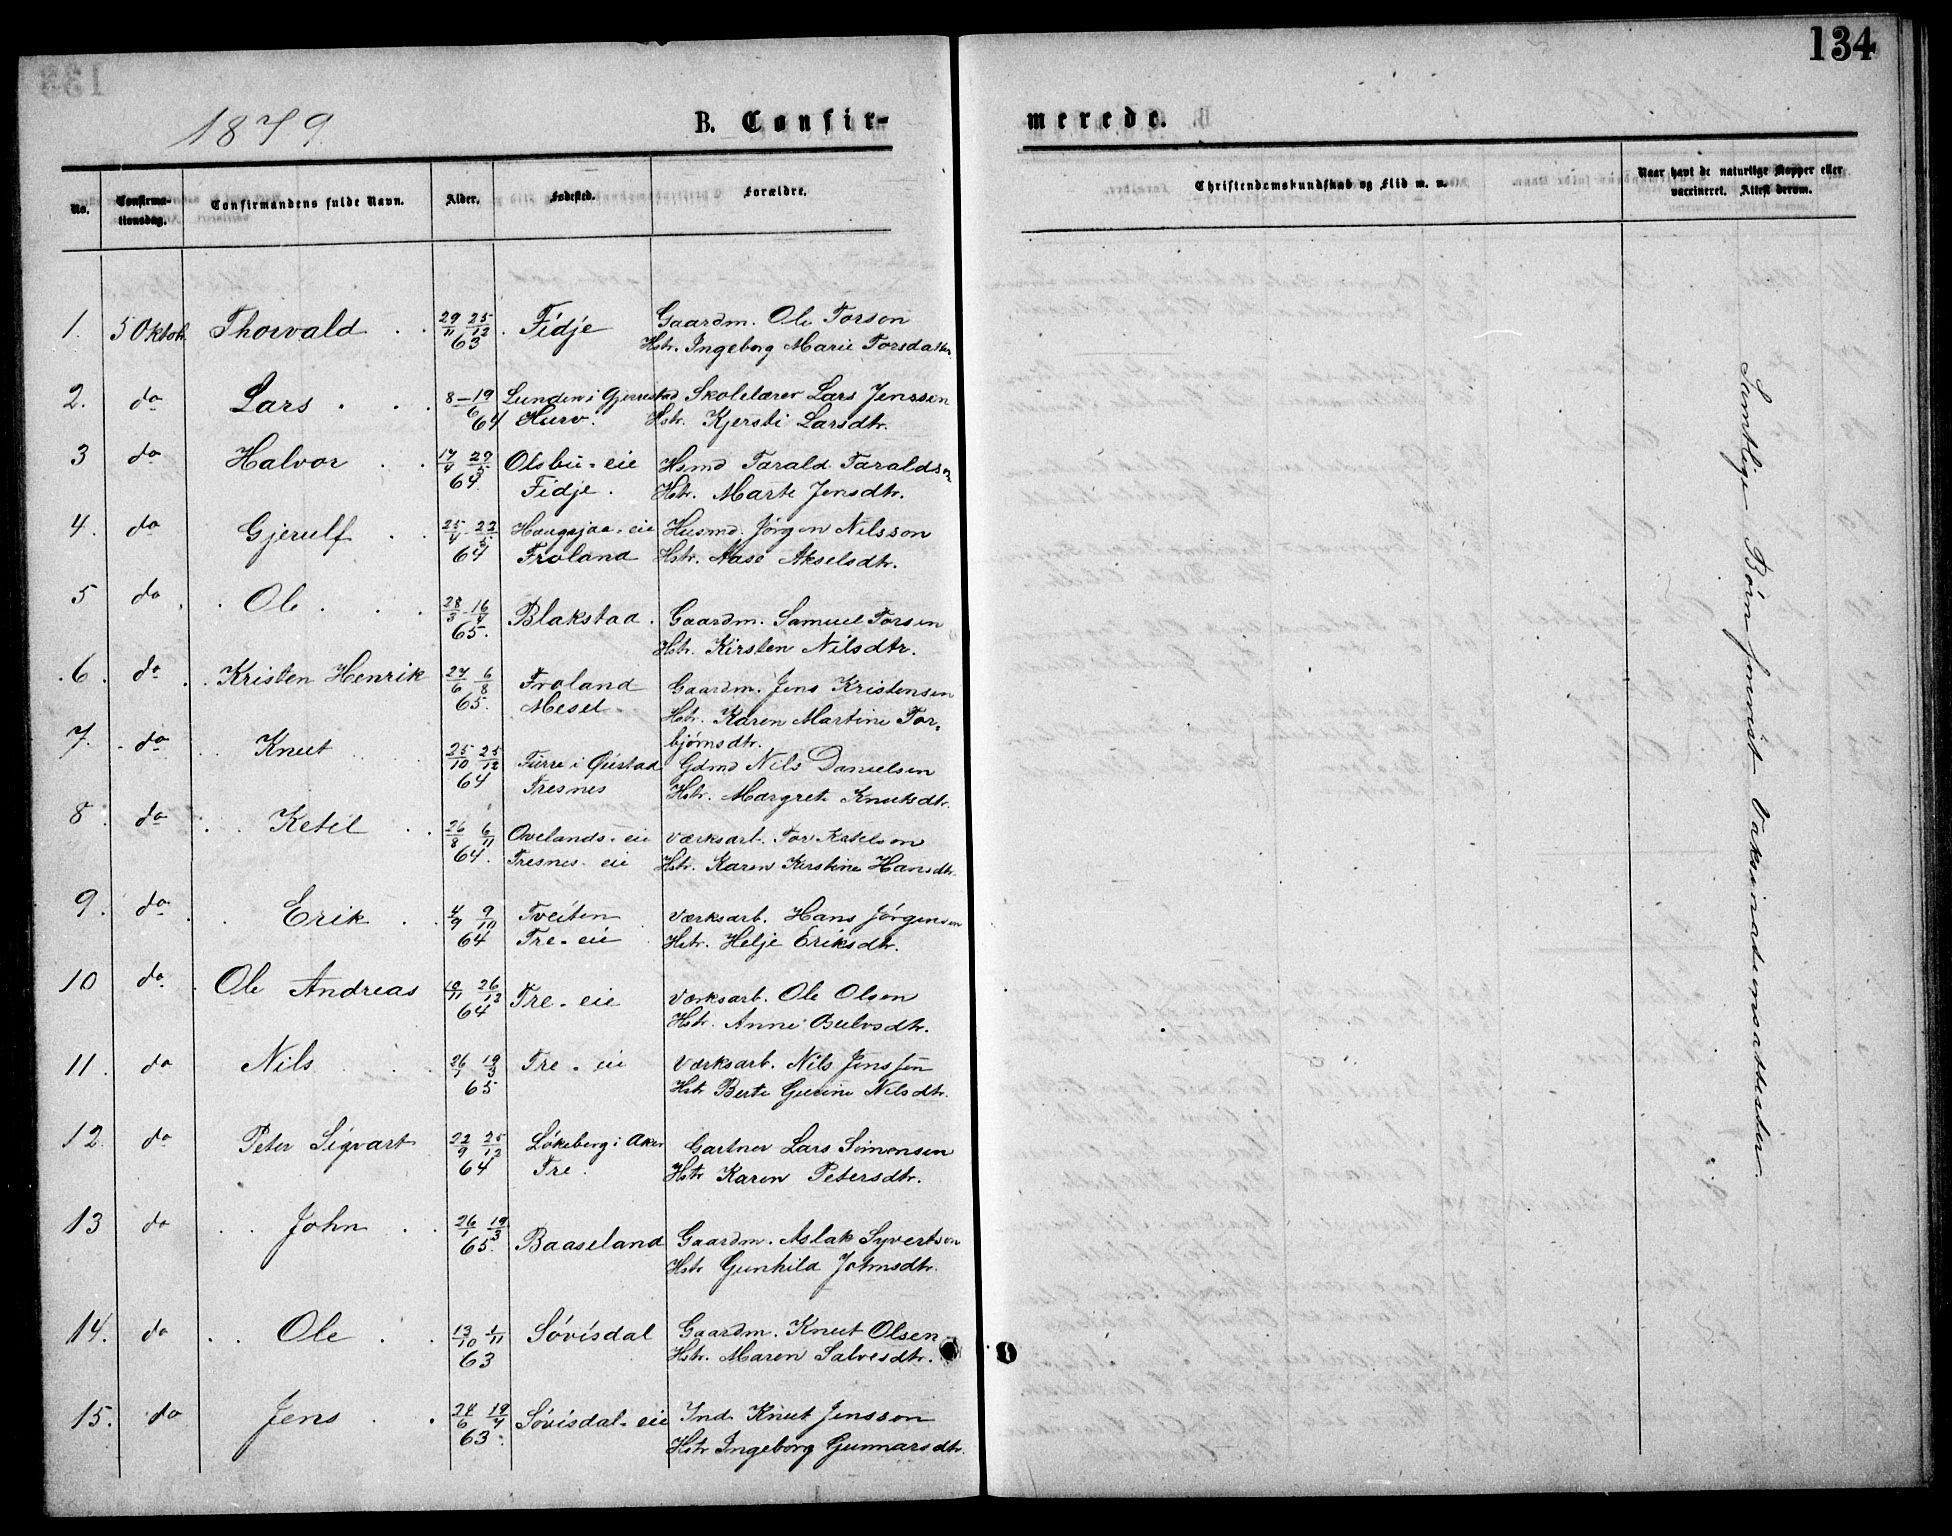 134
1879
B. Confirmerede.
No. Confirmationsdag. Confirmandens fulde Navn. Alder. Fødested. Forældre. Christendomskundskab og Flid m. v. Naar havt de naturlige Kopper eller vaccineret. Attest derom.
1. 5 Oktob. Thorvald 29/11 25/12 63 Fidje Gaardm. Ole Torsen
Hstr. Ingeborg Marie Torsdatter
2. do Lars 8-19/6 64 Lunden i Gjerrestad Skolelærer Lars Jenssen
Hurv. Hstr. Kjersti Larsdtr.
3 do Halvor 17/4 29/5 64 Olsbu-eie Hsmd Tarald Taraldsen
Fidje. Hstr. Marte Jensdtr.
4. do Gjerulf 25/4 22/5 64 Haugsjaa-eie Husmd. Jörgen Nilsson
Froland Hstr. Aase Akselsdtr.
5 do Ole 28/3 16/4 65. Blakstad. Gaardm. Samuel Torsen
Hstr. Kirsten Nilsdtr.
6. do Kristen Henrik 27/6 6/8 65. Froland Gaardm. Jens Kristensen
Mesel Hstr. Karen Martine Torbjørnsdtr.
7. do Knut 25/10 25/12 64 Furre i Øiestad Gdmd Nils Danielsen
Tresnes Hstr. Margrete Knutsdtr.
8. do Ketil 26/8 6/11 64. Ovelands-eie Værksarb. Tor Ketelson
Tresnes-eie Hstr. Karen Kirstine Hansdtr.
9. do Erik 4/9 9/10 64 Tveiten Værksarb. Hans Jørgensen
Tre-eie Hstr. Helje Eriksdtr.
10 do Ole Andreas 10/11 26/12 64 Tre-eie Værksarb. Ole Olsen
Hstr. Anne Bulvsdtr.
11. do Nils 26/1 19/3 65 Tre-eie Værksarb. Nils Jenssen
Hstr Berte Gurine Nilsdtr.
12. do Peter Sigvart 22/9 25/12 64 Løkeberg i Aker Gartner Lars Simonsen
Tre. Hstr Karen Petersdtr.
13 do John 26/1 19/3 65. Baaseland Gaardm. Aslak Syvertson
Hstr Gunhild Johnsdtr.
14. do Ole 13/10 1/11 63 Søvisdal Gaardm. Knut Olsen
Hstr. Maren Salvesdtr.
15. do Jens 24/6 19/7 63. Søvisdal-eie Ind. Knut Jensson
Hstr Ingeborg Gunnarsdtr.
Samtlige Børn forevist Vaksinationsattester